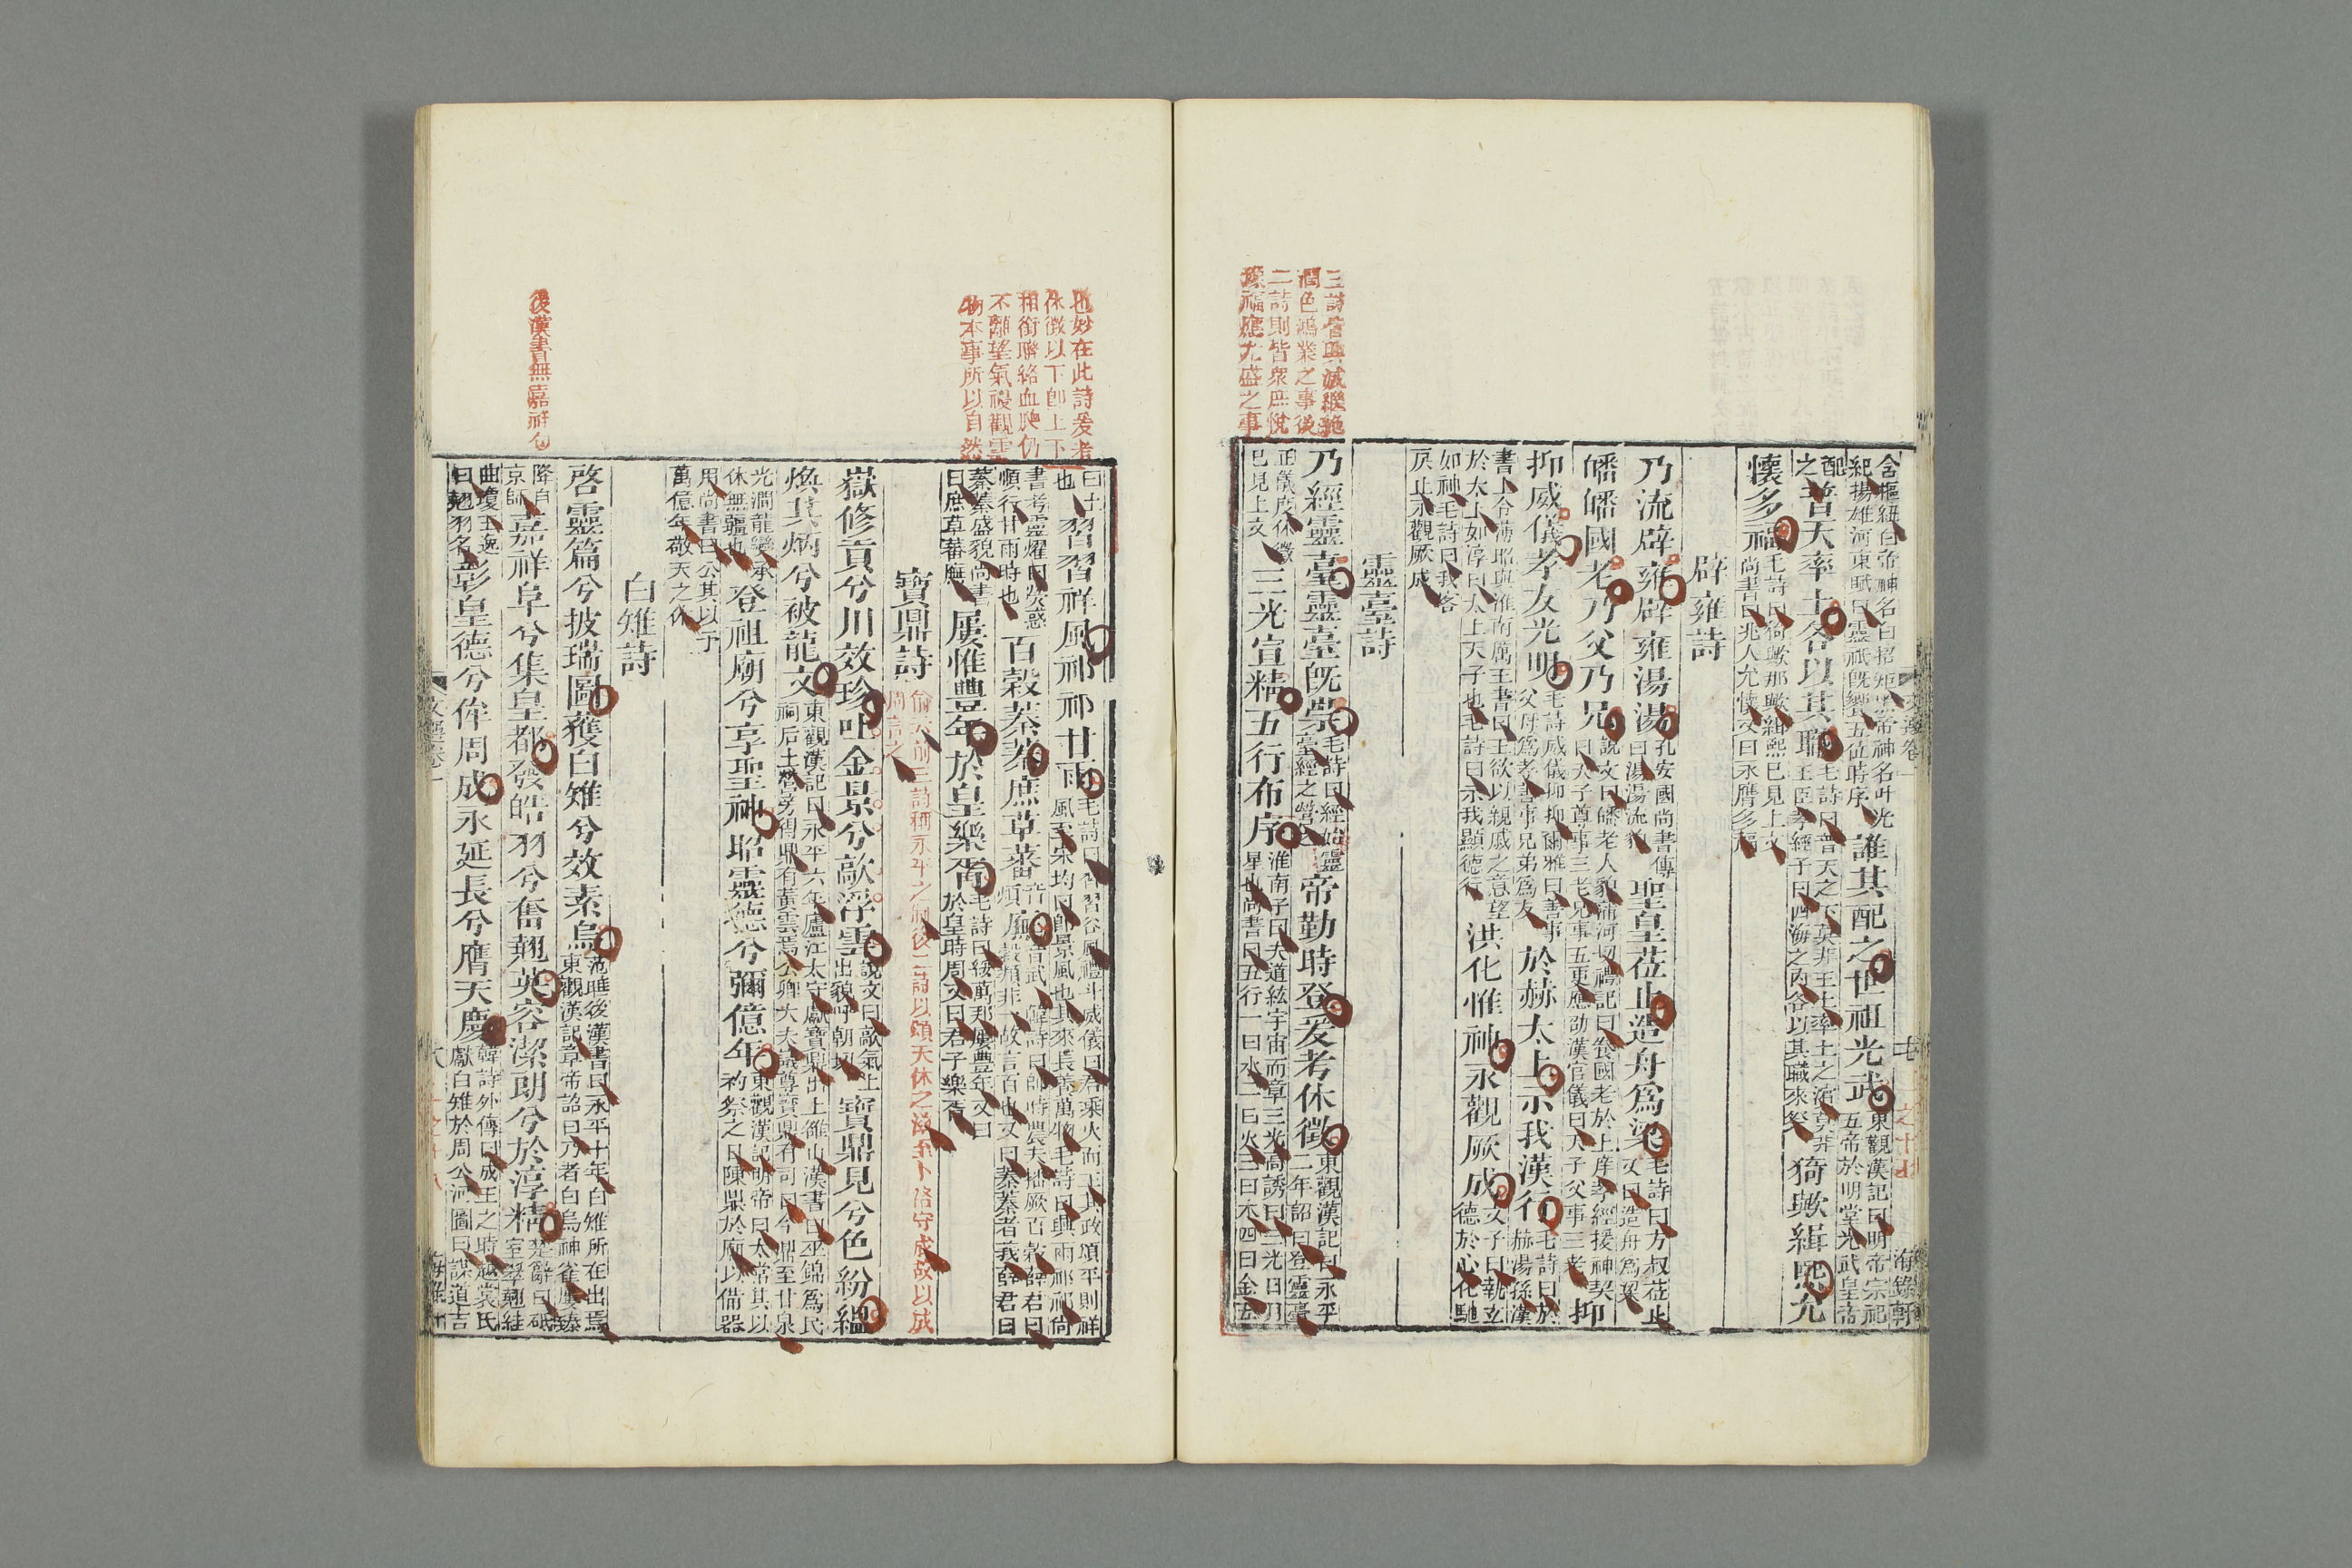 三詩皆與滅繼絶
潤色鴻業之事後
二詩則皆衆庶悅
豫福應尤盛之事
含樞紐白帝神名曰招矩黑帝神名叶光
紀揚雄河東賦曰靈祇既饗五位時序
誰其配之世祖光武
東觀漢記曰明帝宗祀
五帝於明堂光武皇帝
配之
普天率土各以其職
毛詩曰普天之下莫非王土率土之濱莫非
王臣孝經子曰四海之內各以其職來祭
猗歟緝熙允
懷多福
毛詩曰猗歟那歟緝熙已見上文
尚書曰兆人允懷又曰永膺多福
辟雍詩
乃流辟雍辟雍湯湯
孔安國尚書傳
曰湯湯流貌
聖皇莅止造舟爲梁
毛詩曰方叔莅止
又曰造舟爲梁
皤皤國老乃父乃兄
說文曰皤老人貌蒲河切禮記曰養國老於上庠孝經援神契
曰天子尊事三老兄事五更應劭漢官儀曰天子父事三老
抑
抑威儀孝友光明
毛詩威儀抑抑爾雅曰善事
父母爲孝善事兄弟爲友
於赫太上示我漢行
毛詩曰於
赫湯孫漢
書上令薄昭與淮南厲王書曰王欲以親戚之意望
於太上如淳曰太上天子也毛詩曰示我顯德行
洪化惟神永觀厥成
文子曰執玄
德於心化馳
如神毛詩曰我客
戾止永觀厥成
靈臺詩
乃經靈臺靈臺既崇
毛詩曰經始靈
臺經之營之
帝勤時登爰考休徵
東觀漢記曰永平
二年詔曰登靈臺
正儀度休徵
已見上文
三光宣精五行布序
淮南子曰夫道紘宇宙而章三光高誘曰三光日月
星也尚書曰五行一曰水二曰火三曰木四曰金五
也妙在此詩爰考
休徵以下即上下
相銜聯絡血脈仍
不離望氣祲觀雲
物本事所以自然
曰土
也
習習祥風祁祁甘雨
毛詩曰習習谷風禮斗威儀曰君乘火而王其政頌平則祥
風至宋均曰即景風也其來長養萬物毛詩曰興雨祁祁尚
書考靈耀曰熒惑
順行甘雨時也
百穀蓁蓁庶草蕃廡
毛詩曰帥時農夫播厥百穀薛君曰
穀類非一故言百也又曰蓁蓁者莪薛君曰
蓁蓁盛貌尚書
曰庶草蕃廡
屢惟豐年於皇樂胥
毛詩曰綏萬邦屢豐年又曰
於皇時周又曰君子樂胥
寶鼎詩
嶽修貢兮川效珍吐金景兮歊浮雲
說文曰歊氣上
出貌呼朝切
寶鼎見兮色紛縕
煥其炳兮被龍文
東觀漢記曰永平六年廬江太守獻寶鼎出王雒山漢書曰巫錦爲民
祠后土營旁得鼎有黃雲焉公卿大夫議尊寶鼎有司曰今鼎至甘泉
光潤龍變承
休無疆也
登祖廟兮享聖神昭靈德兮彌億年
東觀漢記明帝曰太常其以
礿祭之日陳鼎於廟以備器
用尚書曰公其以予
萬億年敬天之休
白雉詩
啓靈篇兮披瑞圖獲白雉兮效素烏
范曄後漢書曰永平十年白雉所在出焉
東觀漢記章帝詔曰乃者白烏神雀屢臻
降自
京師
後漢書無嘉祥句
嘉祥阜兮集皇都發皓羽兮奮翹英容潔朗兮於淳精
楚辭曰砥
室翠翹絓
曲瓊王逸
曰翹羽名
彰皇德兮侔周成永延長兮膺天慶
韓詩外傳曰成王之時越裳氏
獻白雉於周公河圖曰謀道吉